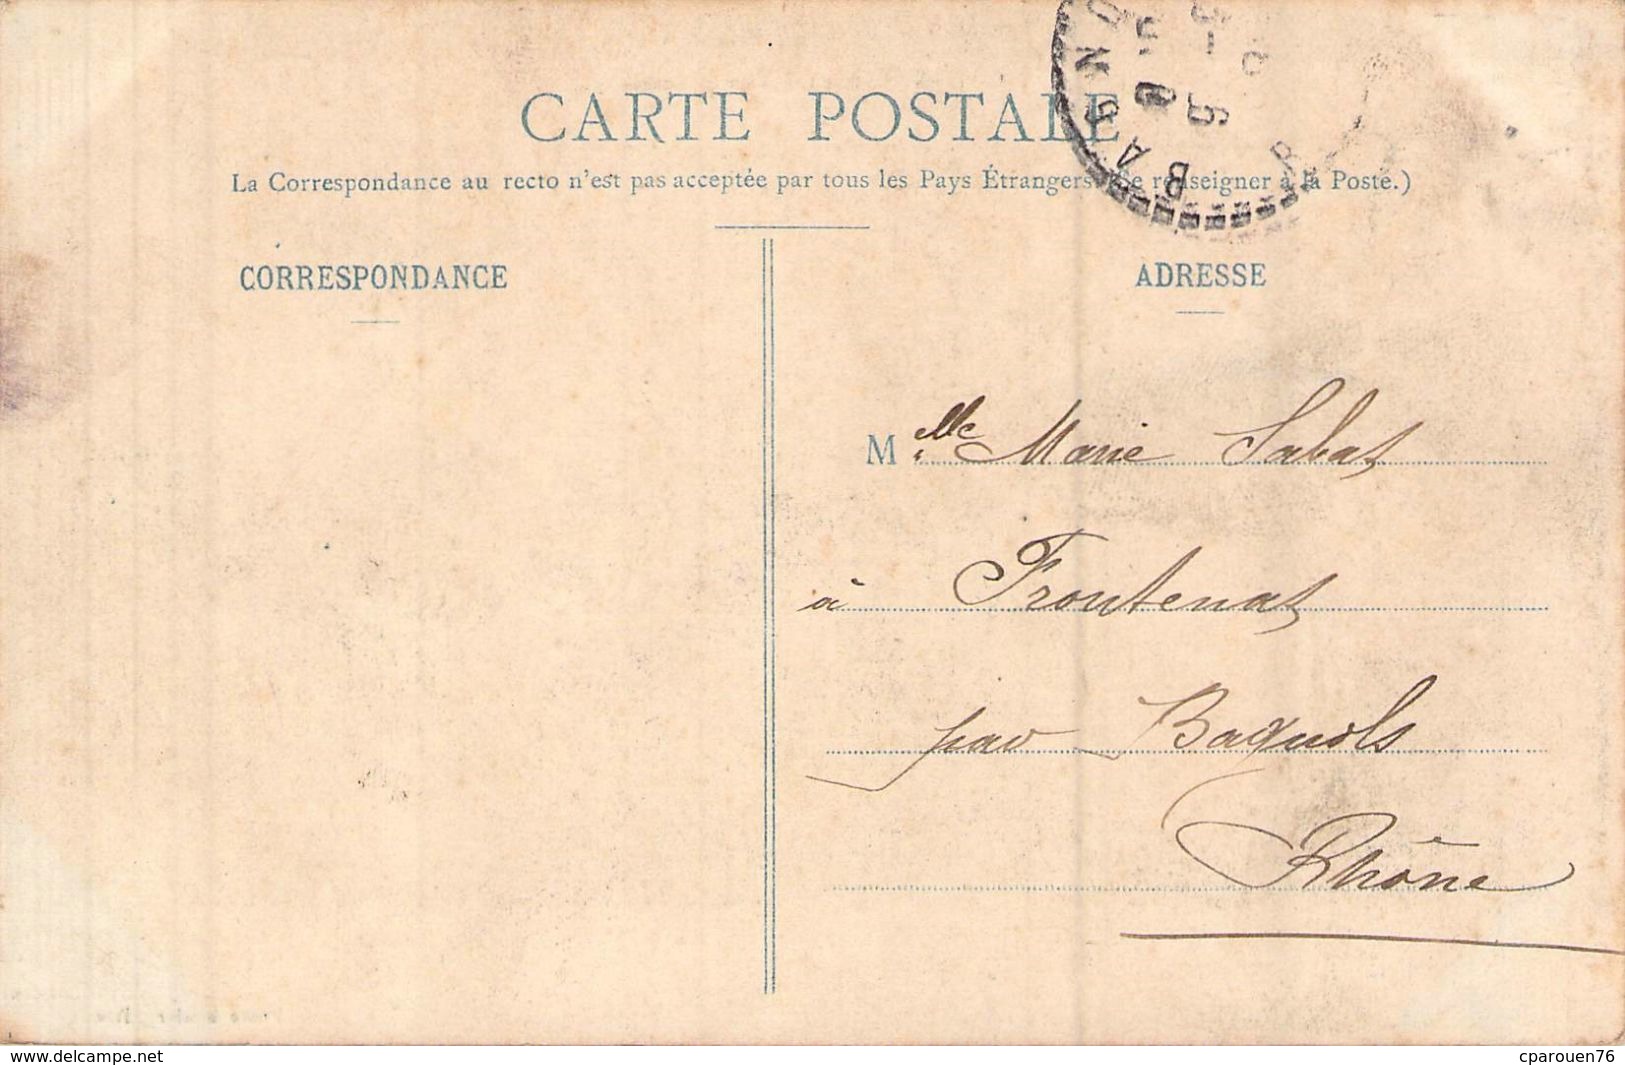 CARTE POSTALE
La Correspondance au recto n'est pas acceptée par tous les Pays Étrangers. (Se renseigner à la Poste.)
CORRESPONDANCE
ADRESSE
Melle Marie Sabat
à Frontenas
par Bagnols
Rhône
www.delcampe.net
cparouen76